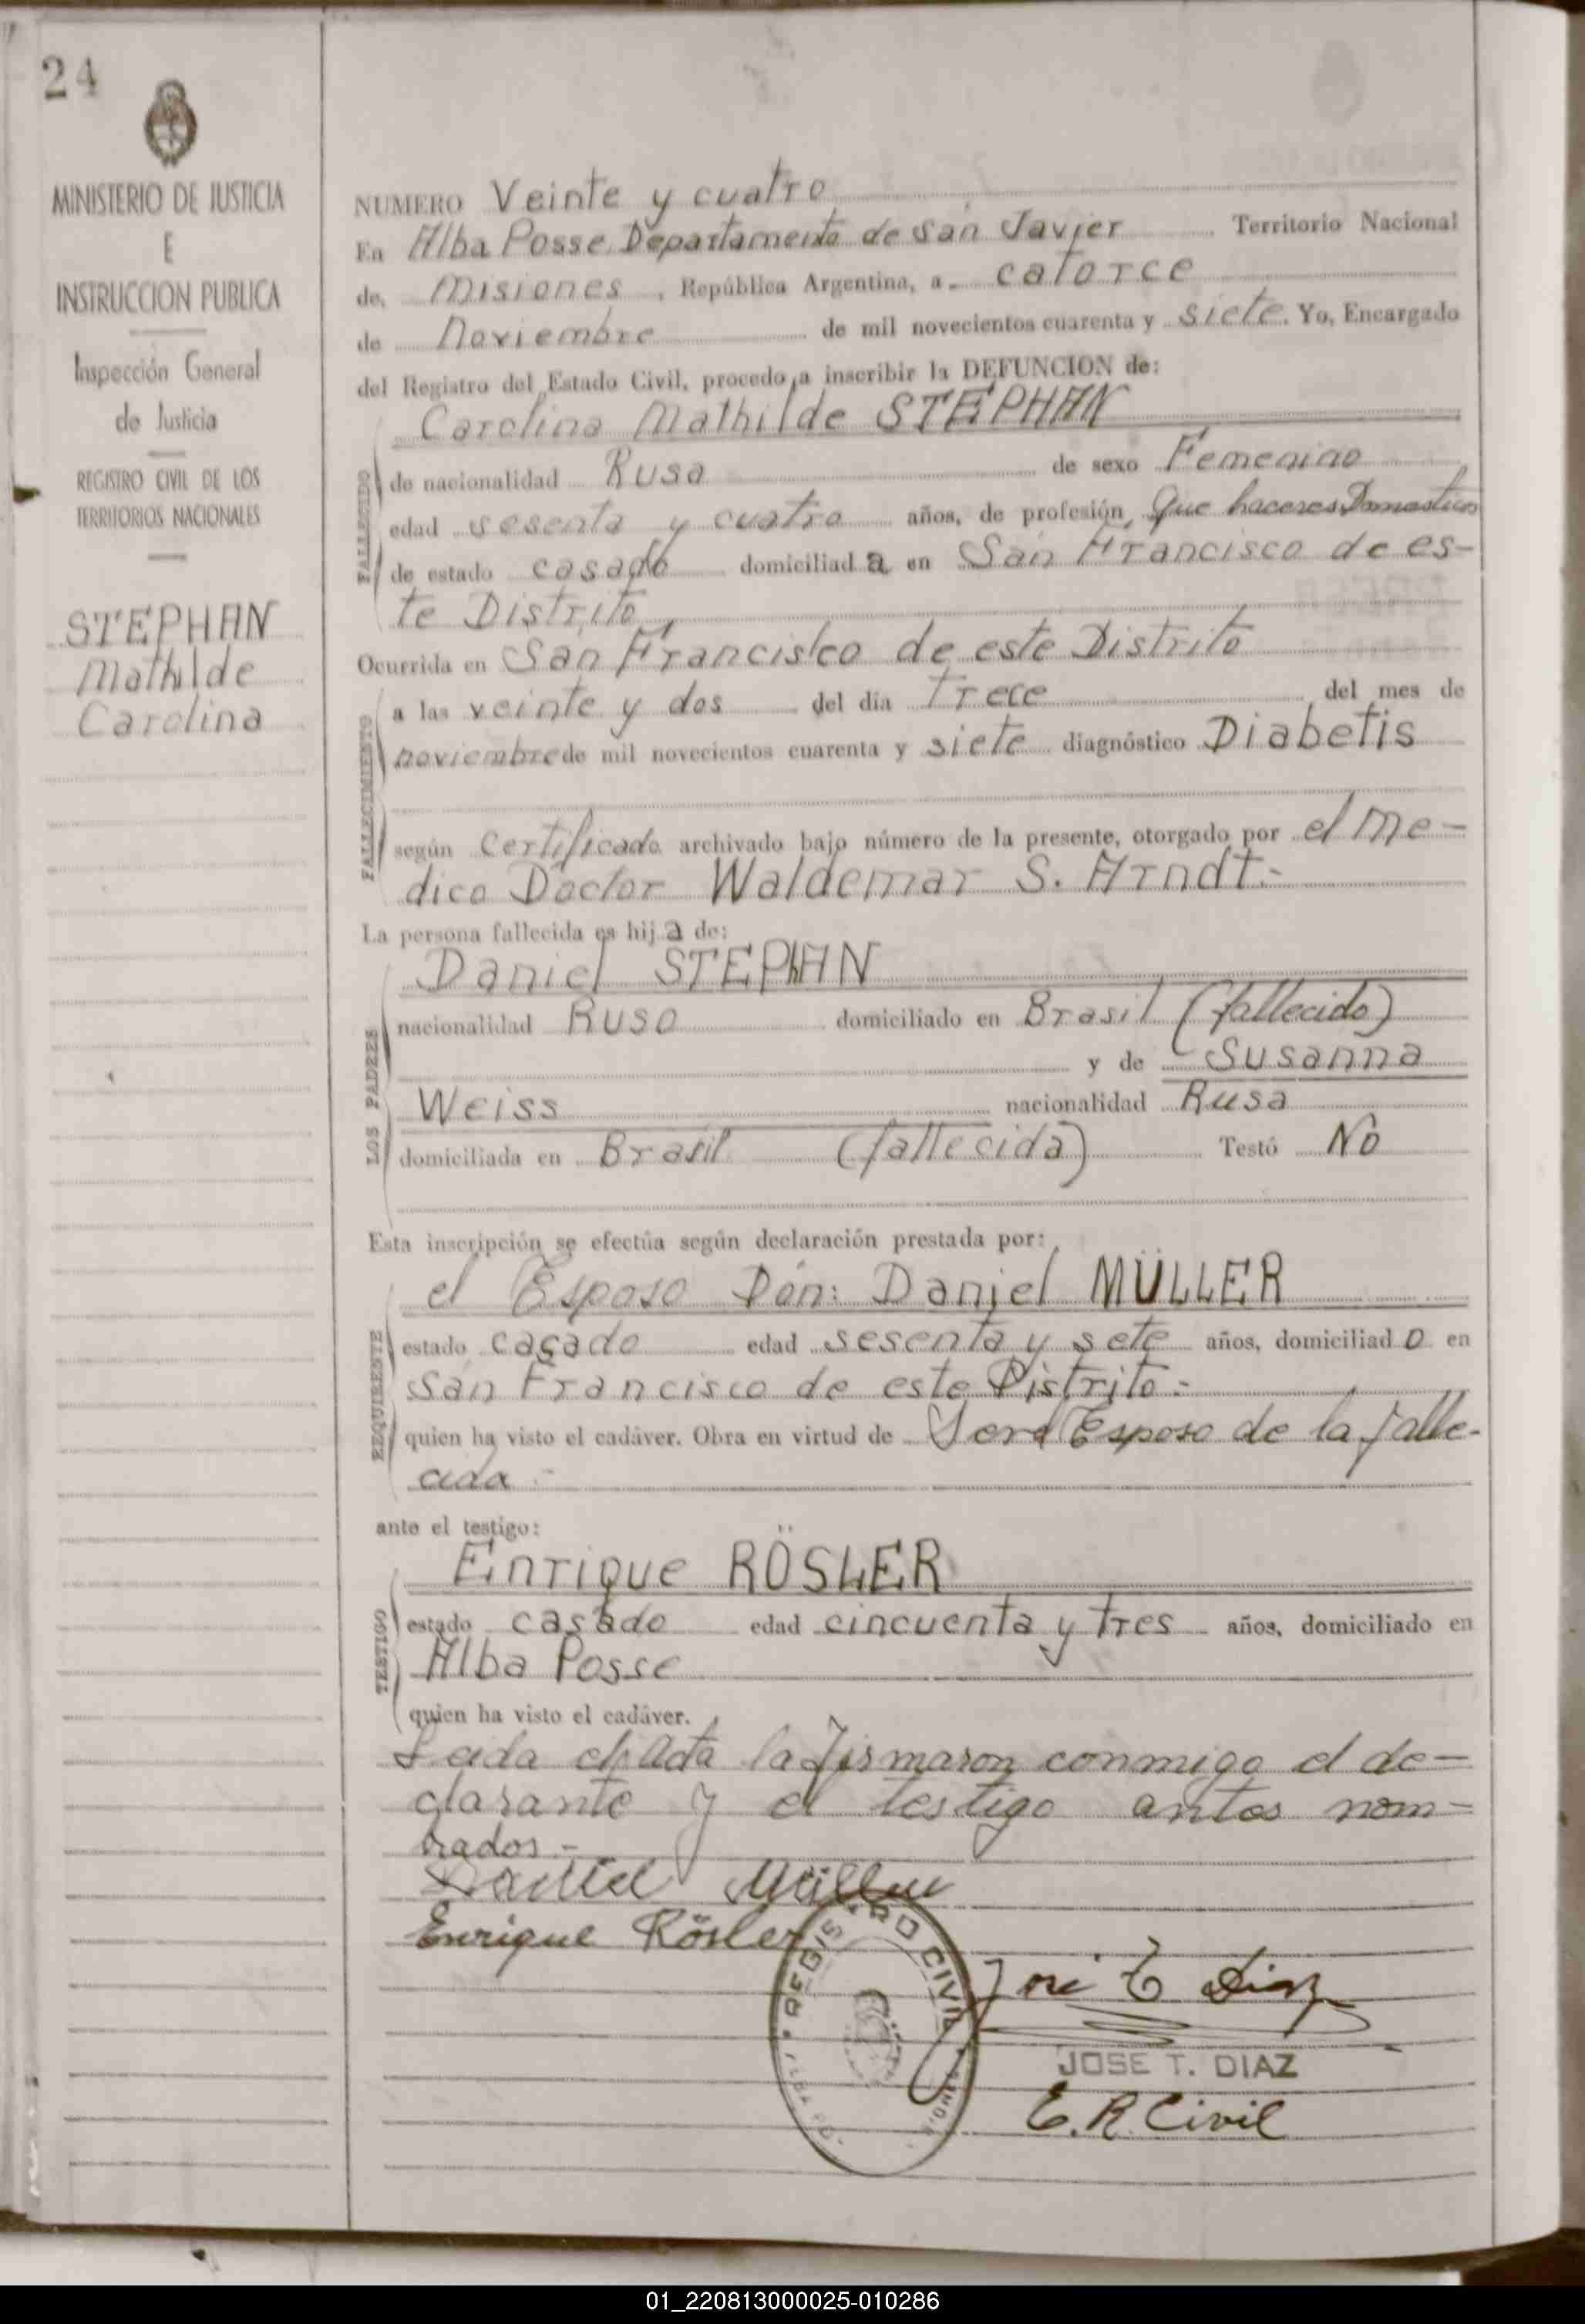 24
MINISTERIO DE JUSTICIA
E
INSTRUCCION PUBLICA
Inspección General
de Justicia
REGISTRO CIVIL DE LOS
TERRITORIOS NACIONALES
STEPHAN
Mathilde
Carolina
NUMERO Veinte y cuatro
En Alba Posse Departamento de San Javier Territorio Nacional
de, Misiones, República Argentina, a catorce
de Noviembre de mil novecientos cuarenta y siete. Yo, Encargado
del Registro del Estado Civil, procedo a inscribir la DEFUNCION de:
Carolina Mathilde STEPHAN
FALLECIDO
de nacionalidad Rusa de sexo Femenino
edad sesenta y cuatro años, de profesión, Que haceres Domesticos
de estado casado domiciliad a en San Francisco de es-
te Distrito
Ocurrida en San Francisco de este Distrito
FALLECIMIENTO
a las veinte y dos del día Trece del mes de
noviembre de mil novecientos cuarenta y siete diagnóstico Diabetis
según Certificado archivado bajo número de la presente, otorgado por el Me-
dico Doctor Waldemar S. Arndt.-
La persona fallecida es hija de:
LOS PADRES
Daniel STEPHAN
nacionalidad Ruso domiciliado en Brasil (fallecido)
y de Susanna
Weiss nacionalidad Rusa
domiciliada en Brasil (fallecida) Testó No
Esta inscripción se efectúa según declaración prestada por:
REQUIRENTE
el Esposo Don: Daniel MÜLLER
estado casado edad sesenta y sete años, domiciliad o en
San Francisco de este Distrito.-
quien ha visto el cadáver. Obra en virtud de Ser el Esposo de la falle-
cida.-
ante el testigo:
TESTIGO
Enrique RÖSLER
estado casado edad cincuenta y tres años, domiciliado en
Alba Posse
quien ha visto el cadáver.
Leida el Acta la firmaron conmigo el de-
clarante y el testigo antes nom-
brados.-
Daniel Müller
Enrique Rösler
REGISTRO CIVIL
José T. Diaz
JOSE T. DIAZ
E. R. Civil
01_220813000025-010286